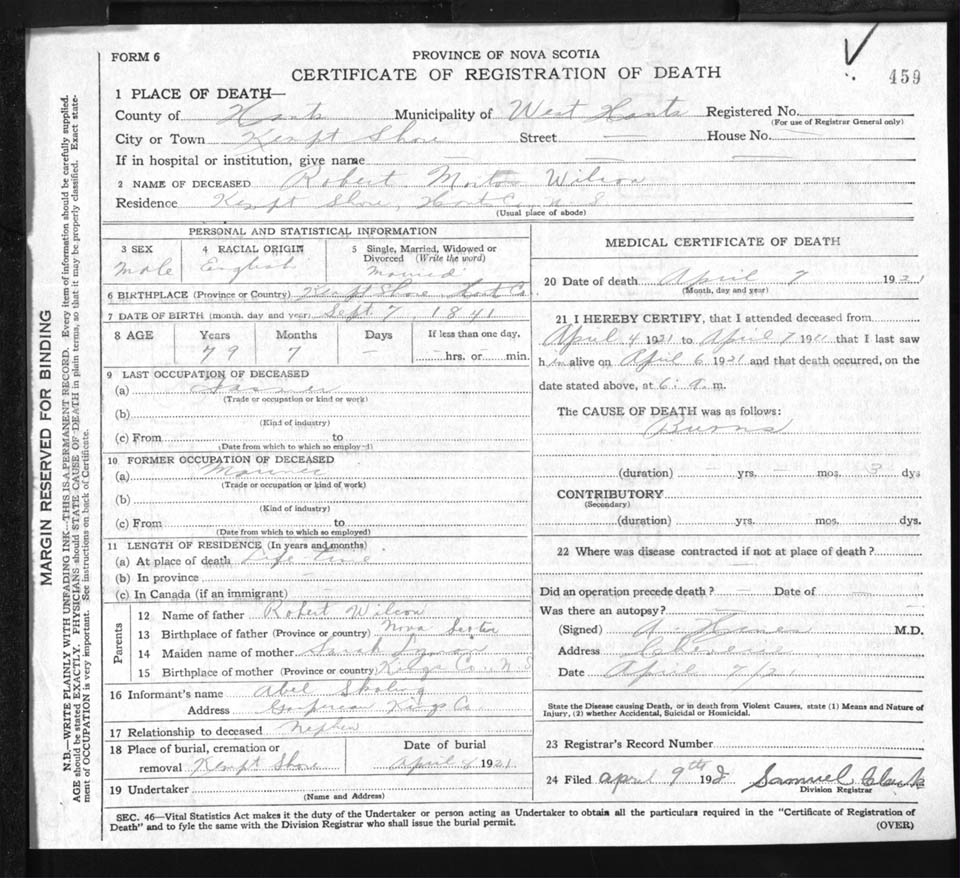 FORM 6
PROVINCE OF NOVA SCOTIA
CERTIFICATE OF REGISTRATION OF DEATH
459
1 PLACE OF DEATH—
County of Hants Municipality of West Hants Registered No.
(For use of Registrar General only)
City or Town Kempt Shore Street — House No. —
If in hospital or institution, give name — — —
2 NAME OF DECEASED Robert Morton Wilson
Residence Kempt Shore, Hants Co., N. S
(Usual place of abode)
PERSONAL AND STATISTICAL INFORMATION
3 SEX 4 RACIAL ORIGIN 5 Single, Married, Widowed or Divorced (Write the word)
Male English Married
6 BIRTHPLACE (Province or Country) Kempt Shore Hants Co.
7 DATE OF BIRTH (month, day and year) Sept. 7, 1841
8 AGE Years Months Days If less than one day,
79 7 — — hrs. or — min.
9 LAST OCCUPATION OF DECEASED
(a) Farmer
(Trade or occupation or kind or work)
(b)
(Kind of industry)
(c) From to
(Date from which to which so employed)
10 FORMER OCCUPATION OF DECEASED
(a) Mariner
(Trade or occupation or kind of work)
(b)
(Kind of industry)
(c) From to
(Date from which to which so employed)
11 LENGTH OF RESIDENCE (In years and months)
(a) At place of death Life time
(b) In province —
(c) In Canada (if an immigrant) —
Parents
12 Name of father Robert Wilson
13 Birthplace of father (Province or country) Nova Scotia
14 Maiden name of mother Sarah
15 Birthplace of mother (Province or country) Kings Co., N. S
16 Informant's name Abel
Address Kings Co.
17 Relationship to deceased Nephew
18 Place of burial, cremation or removal Kempt Shore
Date of burial
April 1921
19 Undertaker
(Name and Address)
MEDICAL CERTIFICATE OF DEATH
20 Date of death April 7 1921
(Month, day and year)
21 I HEREBY CERTIFY, that I attended deceased from
April 4 1921 to April 7 19 that I last saw
h im alive on April 6 1921 and that death occurred, on the
date stated above, at 6: a.m.
The CAUSE OF DEATH was as follows:
Burns
(duration) — yrs. — mos. 3 dys
CONTRIBUTORY
(Secondary)
(duration) yrs. mos. dys.
22 Where was disease contracted if not at place of death?
—
Did an operation precede death? — Date of —
Was there an autopsy? —
(Signed) M.D.
Address Cheverie
Date April 7/21
State the Disease causing Death, or in death from Violent Causes, state (1) Means and Nature of
Injury, (2) whether Accidental, Suicidal or Homicidal.
23 Registrar's Record Number
24 Filed April 9th 192 Samuel Clark
Division Registrar
SEC. 46—Vital Statistics Act makes it the duty of the Undertaker or person acting as Undertaker to obtain all the particulars required in the "Certificate of Registration of
Death" and to fyle the same with the Division Registrar who shall issue the burial permit.
(OVER)
MARGIN RESERVED FOR BINDING
N.B.—WRITE PLAINLY WITH UNFADING INK—THIS IS A PERMANENT RECORD. Every item of information should be carefully supplied.
AGE should be stated EXACTLY. PHYSICIANS should STATE CAUSE OF DEATH in plain terms, so that it may be properly classified. Exact state-
ment of OCCUPATION is very important. See instructions on back of Certificate.